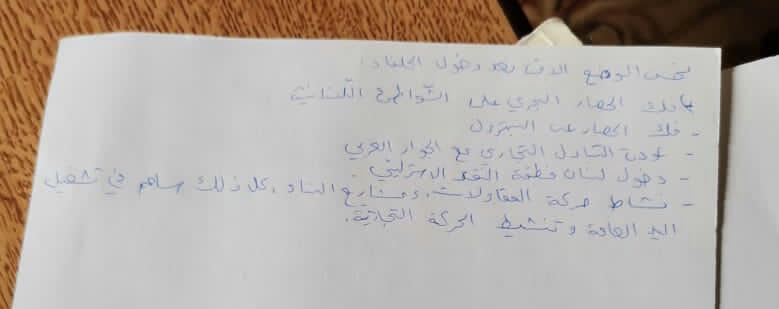 تحسن الوضع الاقت بعد دخول الحلفاء:
فك الحصار البحري على الشواطئ اللبنانية
- فك الحصار عن البترول
- عودة التبادل التجاري مع الجوار العربي
- دخول لبنان منطقة النقد الاسترليني.
- نشاط حركة المقاولات، ومشاريع البناء، كل ذلك ساهم في تشغيل
اليد العاملة وتنشيط الحركة التجارية.